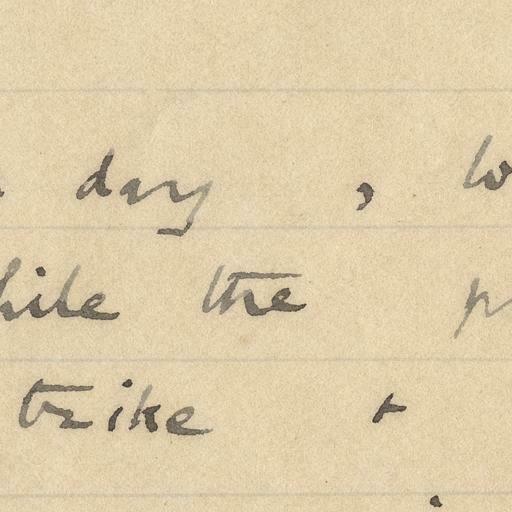 day , lo
hile the p
trike +